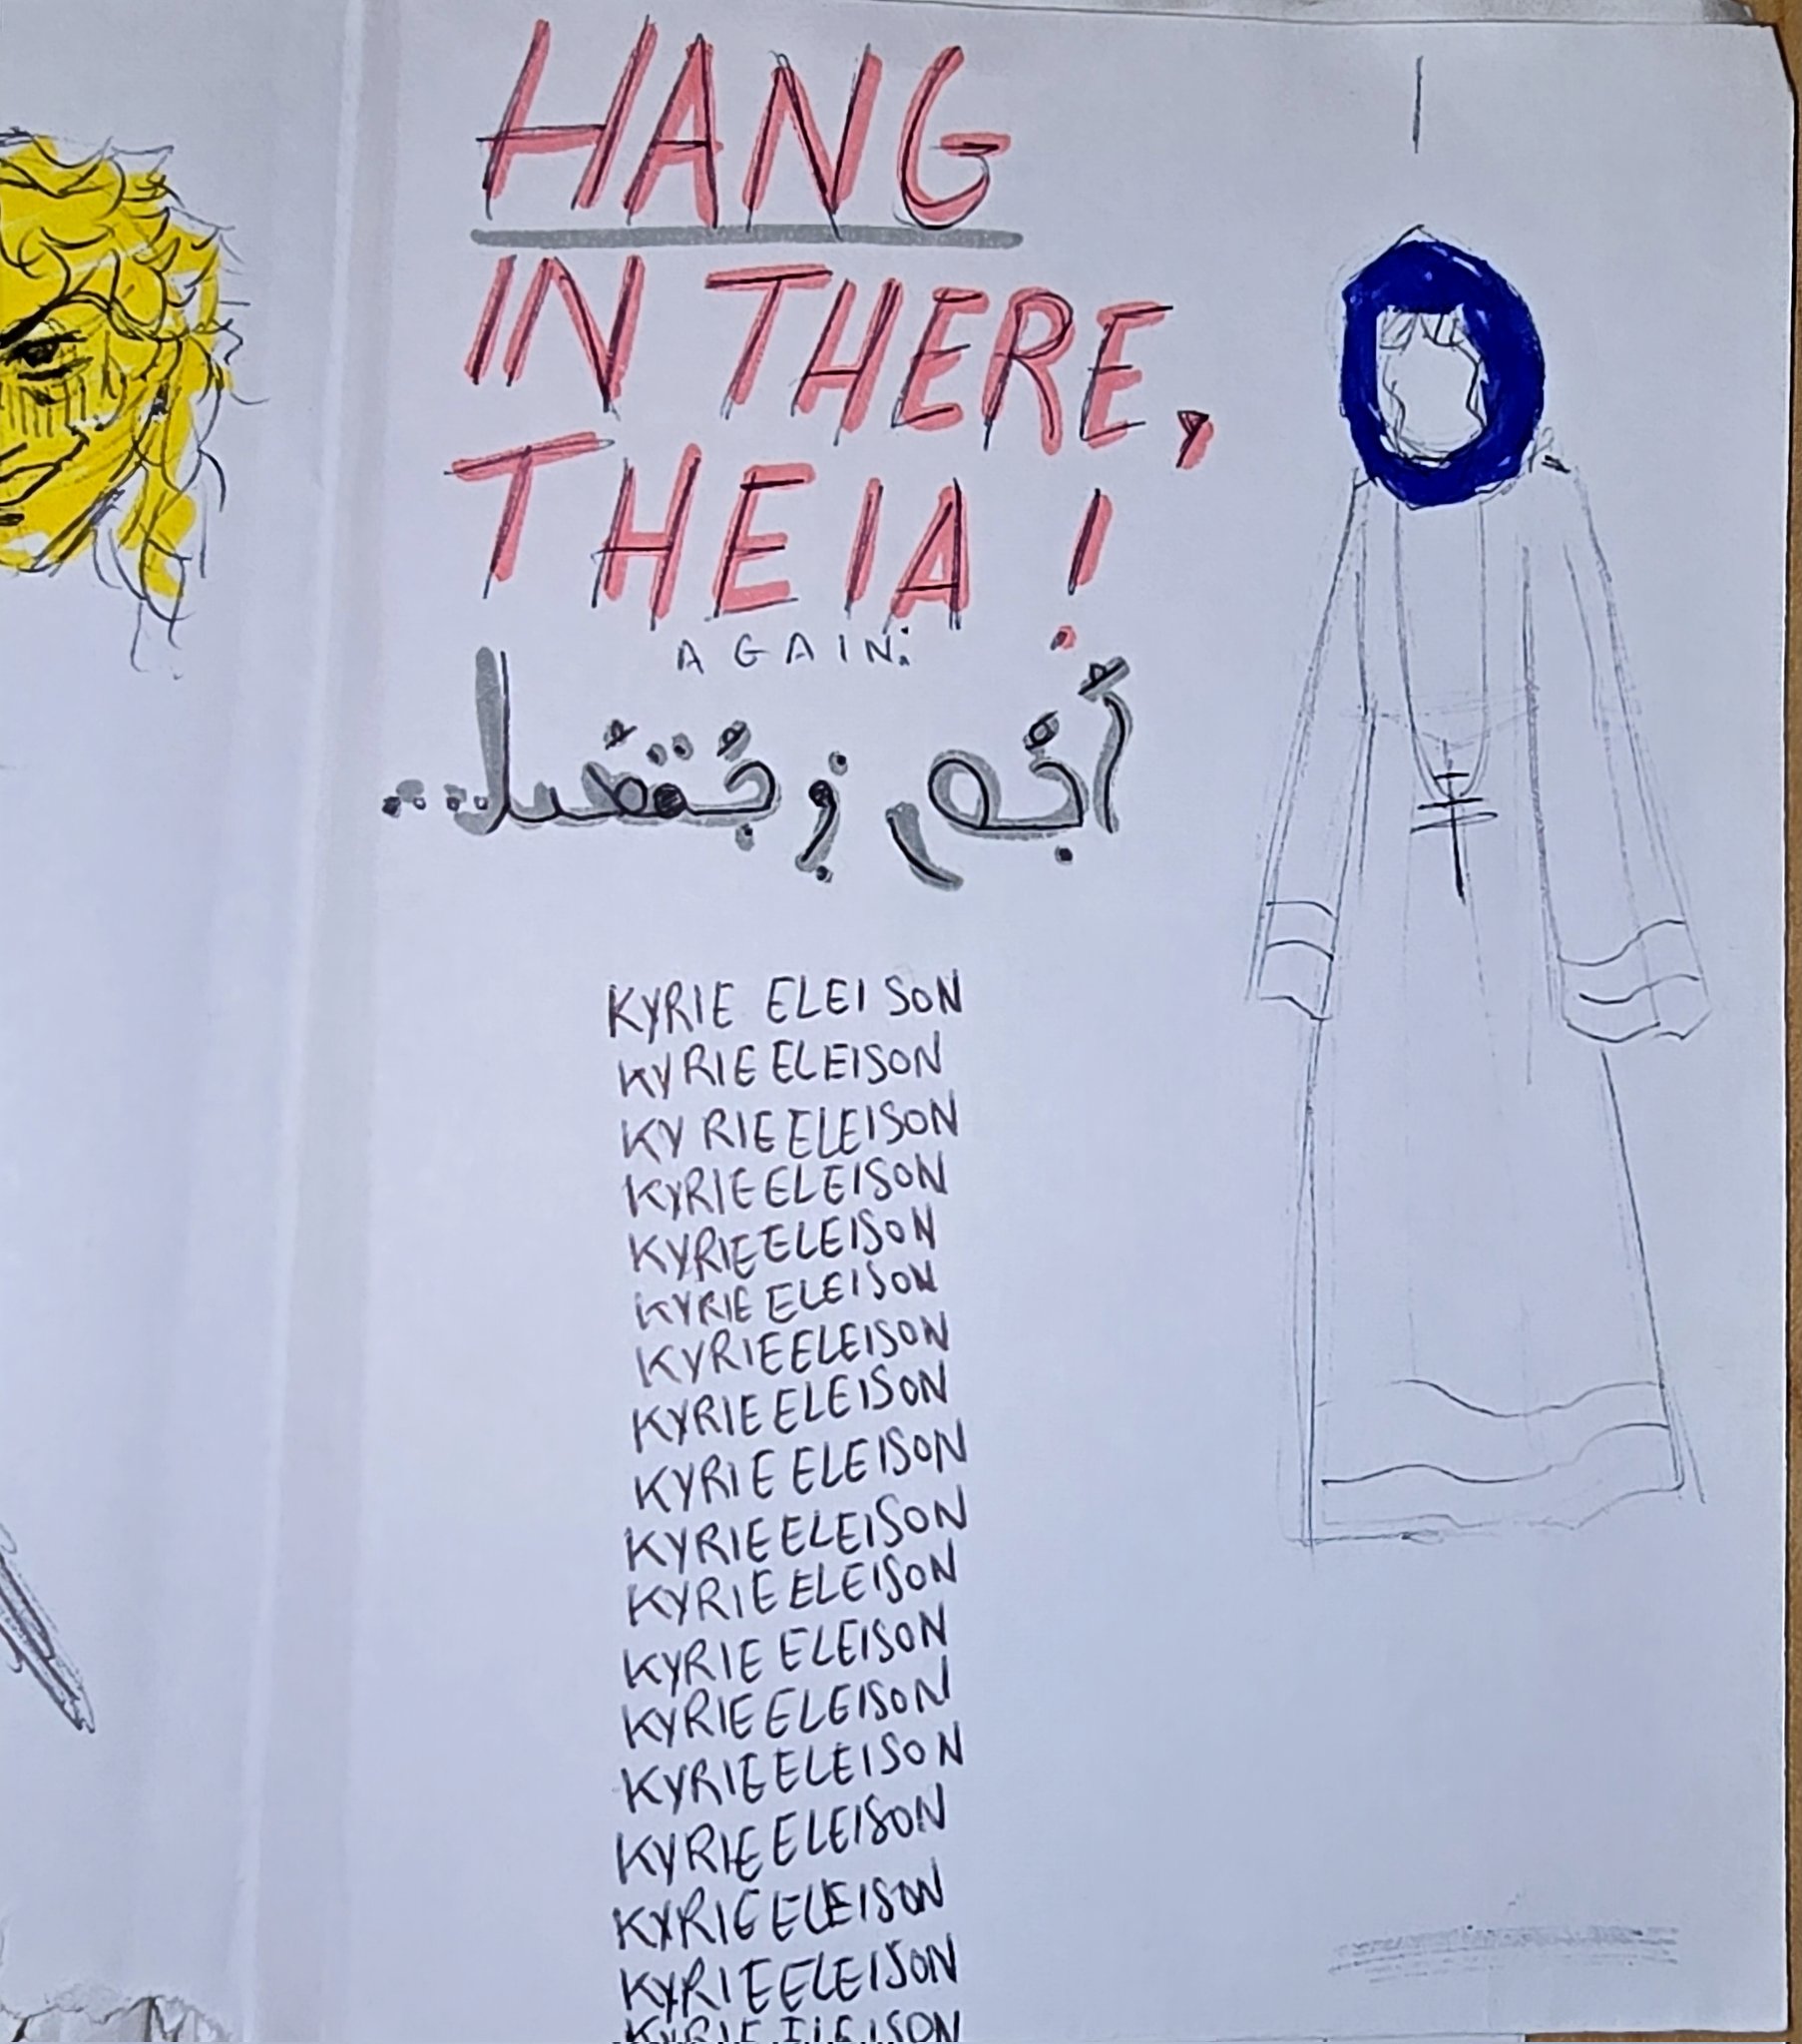 HANG
IN THERE,
THEIA!
AGAIN:
KYRIE ELEISON
KYRIE ELEISON
KYRIE ELEISON
KYRIE ELEISON
KYRIE ELEISON
KYRIE ELEISON
KYRIE ELEISON
KYRIE ELEISON
KYRIE ELEISON
KYRIE ELEISON
KYRIE ELEISON
KYRIE ELEISON
KYRIE ELEISON
KYRIE ELEISON
KYRIE ELEISON
KYRIE ELEISON
KYRIE ELEISON
KYRIE ELEISON